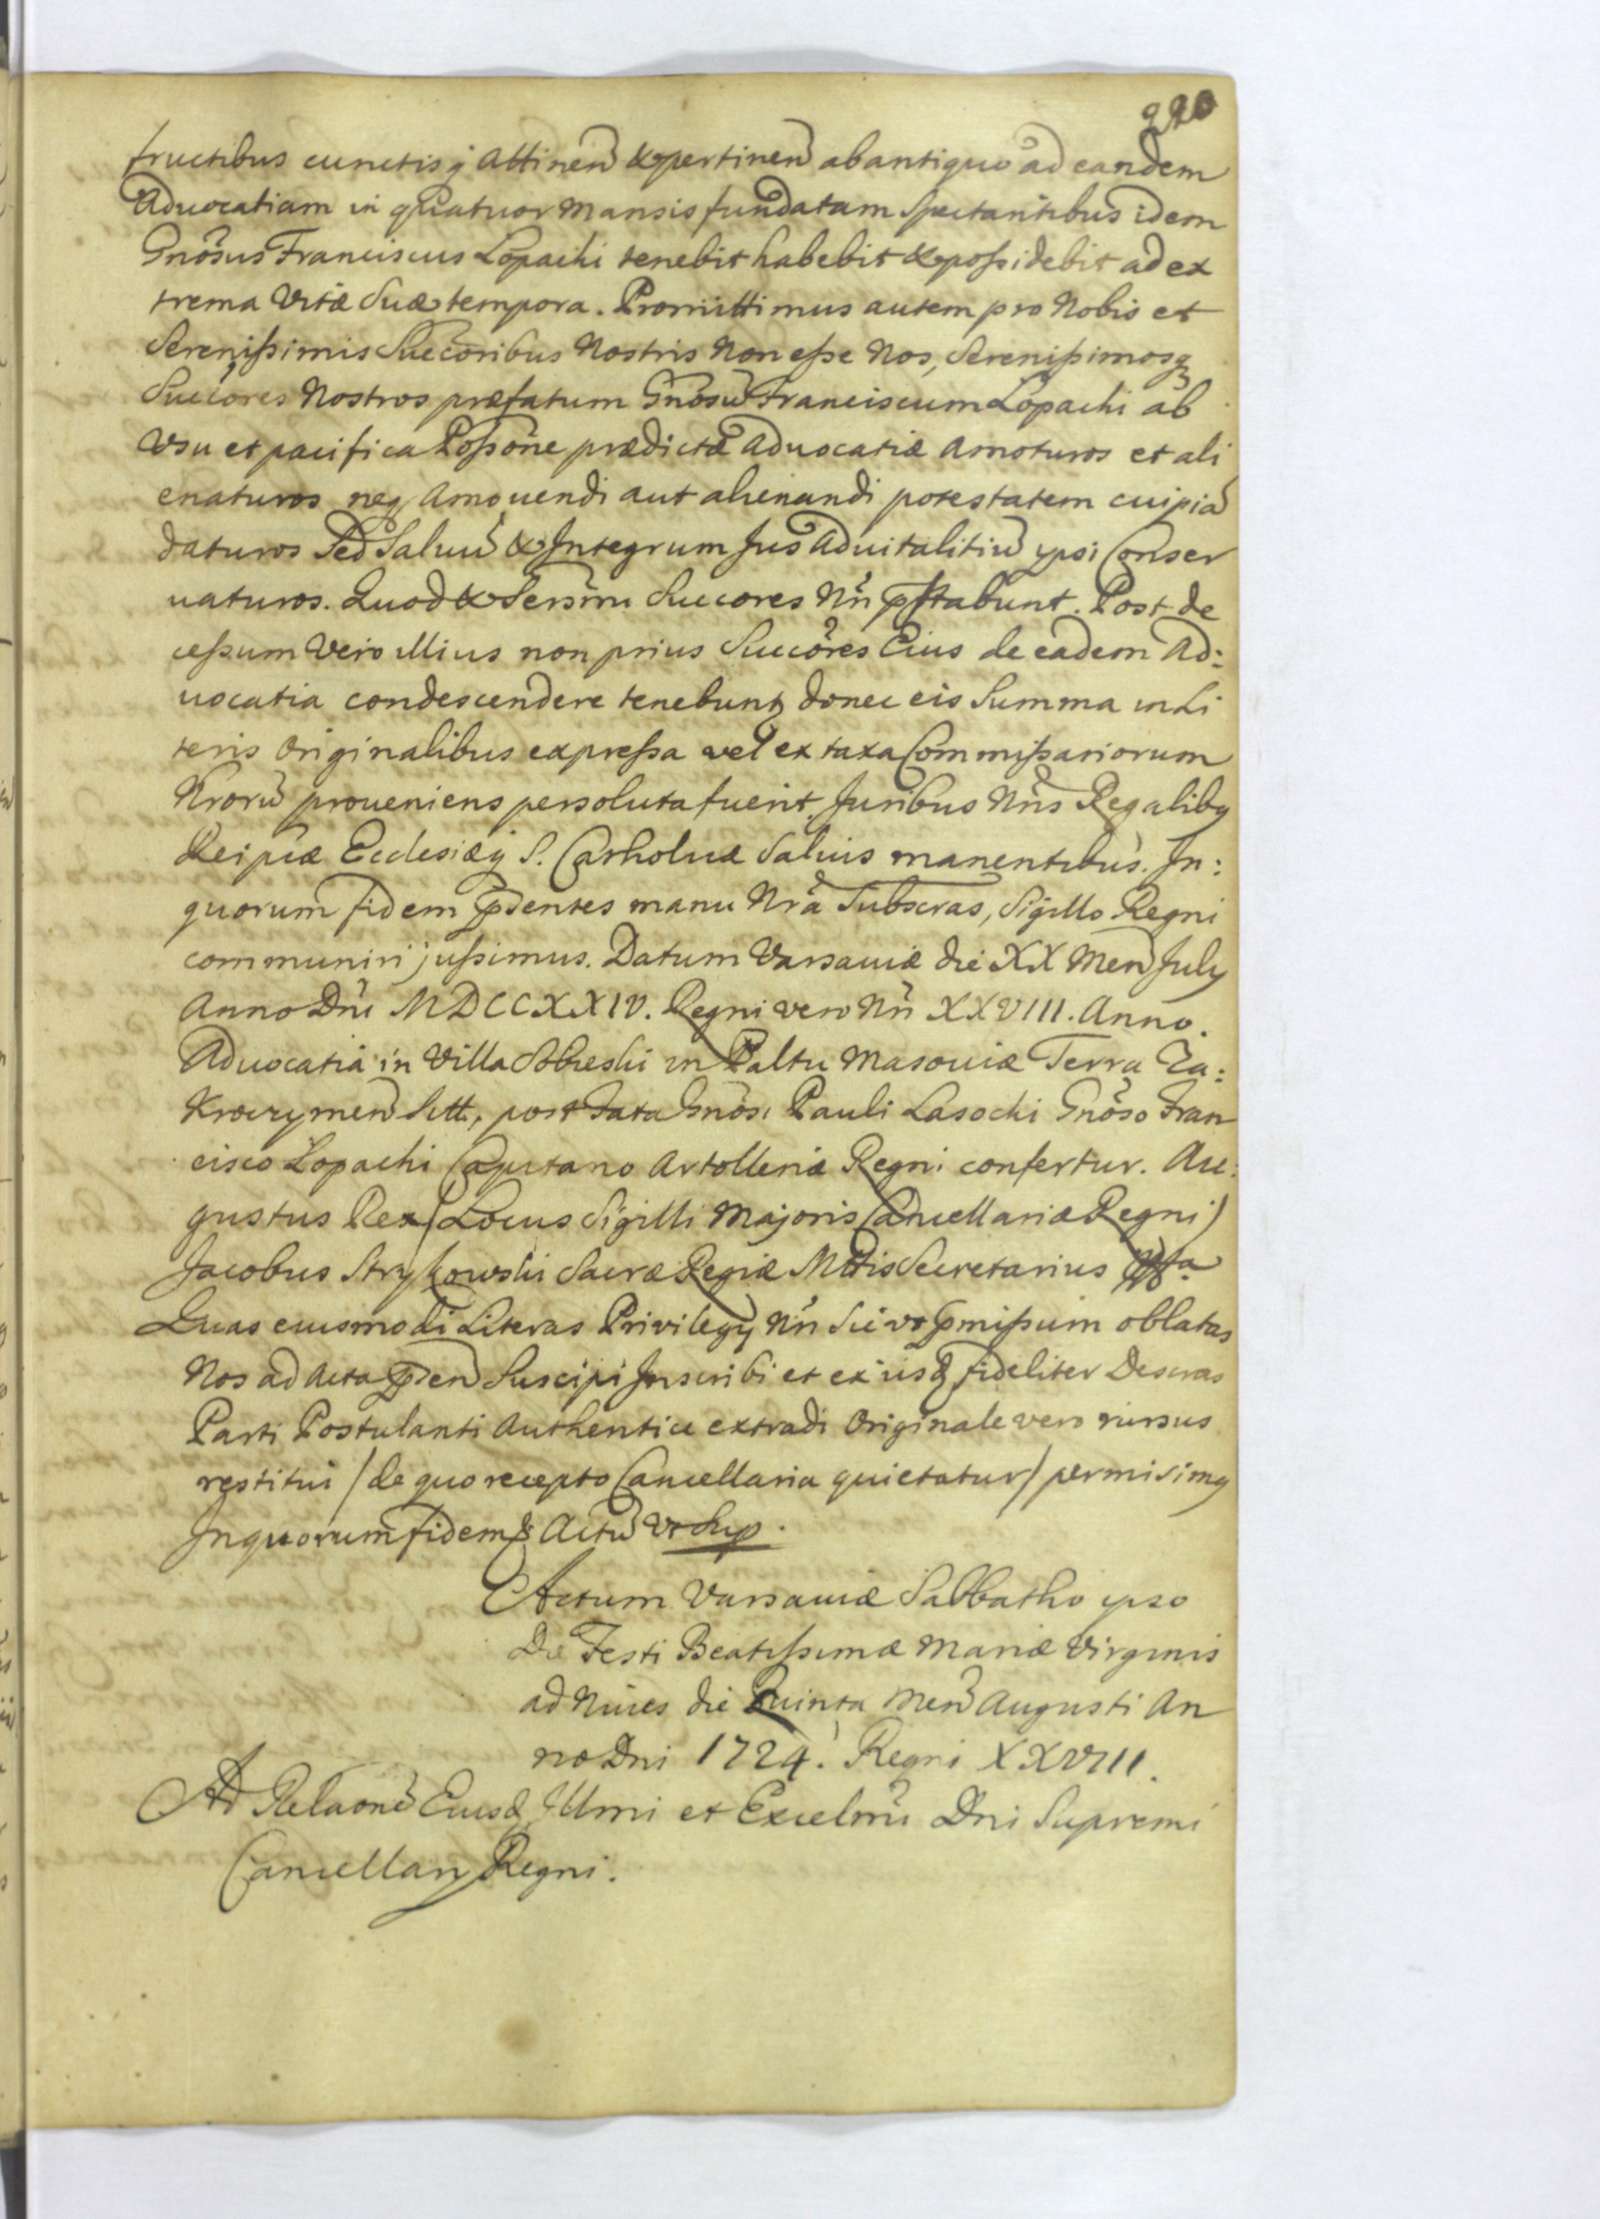 220
fructibus cunctisq Attinen̄ & pertinen̄ ab antiquo ad eandem
Aduocatiam in quatuor mansis fundatam Spectantibus idem
Gnōsus Franciscus Lopacki tenebit habebit & poſsidebit ad ex
trema Vitæ Suæ tempora. Promittimus autem pro Nobis et
Sereniſsimis Succōribus Nostris Non eſse Nos, Sereniſsimosq
Succōres Nostros præfatum Gnōsū Franciscum Lopacki ab
Vsu et pacifica Poſsōne prædictæ Aduocatiæ Amoturos et ali
enaturos neq Amouendi aut alienandi potestatem cuipiā
daturos Sed Saluū & Integrum Jus Aduitalitiū ypsi Conser
uaturos. Quod & Serm̄i Succores Nr̄i p̄stabunt. Post de
ceſsum Vero illius non prius Succōres Eius de eadem Ad:
uocatia condescendere tenebunt donec eis Summa in Li
teris Originalibus expreſsa vel ex taxa Commiſsariorum
Nrorū proueniens persoluta fuerit, Juribus Nr̄is Regalibq
Reipcæ Ecclesiæq S. Catholicæ Saluis manentibus. In:
quorum fidem p̄sentes manu Nrā Subscras, Sigillo Regni
communiri juſsimus. Datum Varsauiæ die XX Men̄ July
Anno Dni MDCCXXIV. Regni vero Nr̄i XXVIII. Anno.
Aduocatia in Villa Sobieski in Paltu Masouiæ Terra Za:
Kroczymen̄ Sitt, post fata Gnōsi Pauli Lasocki Gnōso Fran
cisco Lopacki Capitano Artolleriæ Regni confertur. Au:
gustus Rex (Locus Sigilli Majoris Cancellariæ Regni)
Jacobus Strykowski Sacræ Regiæ Mttis Secretarius
Quas eiusmodi Literas Privilegy Nr̄i Sic vt p̄miſsum oblatas
Nos ad Acta p̄sen̄ Suscipi Inscribi et ex iisd fideliter Descras
Parti Postulanti Authentice extradi Originale vero rursus
restitui (de quo recepto Cancellaria quietatur) permisimq
In quorum fidem & Actū Vt Sup.
Actum Varsauiæ Sabbatho ypso
Die Festi Beatiſsimæ Mariæ Virginis
ad Niues die Quinta Men̄ Augusti An
no Dni 1724. Regni XXVIII.
Ad Relaonē Eiusd Illmi et Excelm̄i Dni Supremi
Cancellary Regni.